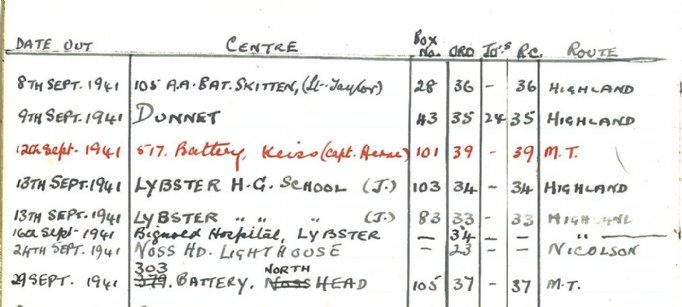 DATE OUT CENTRE Box No. ORD Jo's P.C. ROUTE
8TH SEPT. 1941 105 A.A. BAT. SKITTEN, (Lt. Taylor) 28 36 - 36 HIGHLAND
9TH SEPT. 1941 DUNNET 43 35 24 35 HIGHLAND
12th Sept. 1941 517. Battery, Keiss (Capt. ) 101 39 - 39 M.T.
13TH SEPT. 1941 LYBSTER H.G. SCHOOL (J.) 103 34 - 34 HIGHLAND
13TH SEPT. 1941 LYBSTER " " " (J.) 83 33 - 33 HIGHLAND
16th Sept 1941 Bignold Hospital, LYBSTER - 34 - - "
24TH SEPT. 1941 NOSS HD. LIGHTHOUSE - 23 - - NICOLSON
303 NORTH
29 SEPT. 1941 379. BATTERY, Noss HEAD 105 37 - 37 M.T.